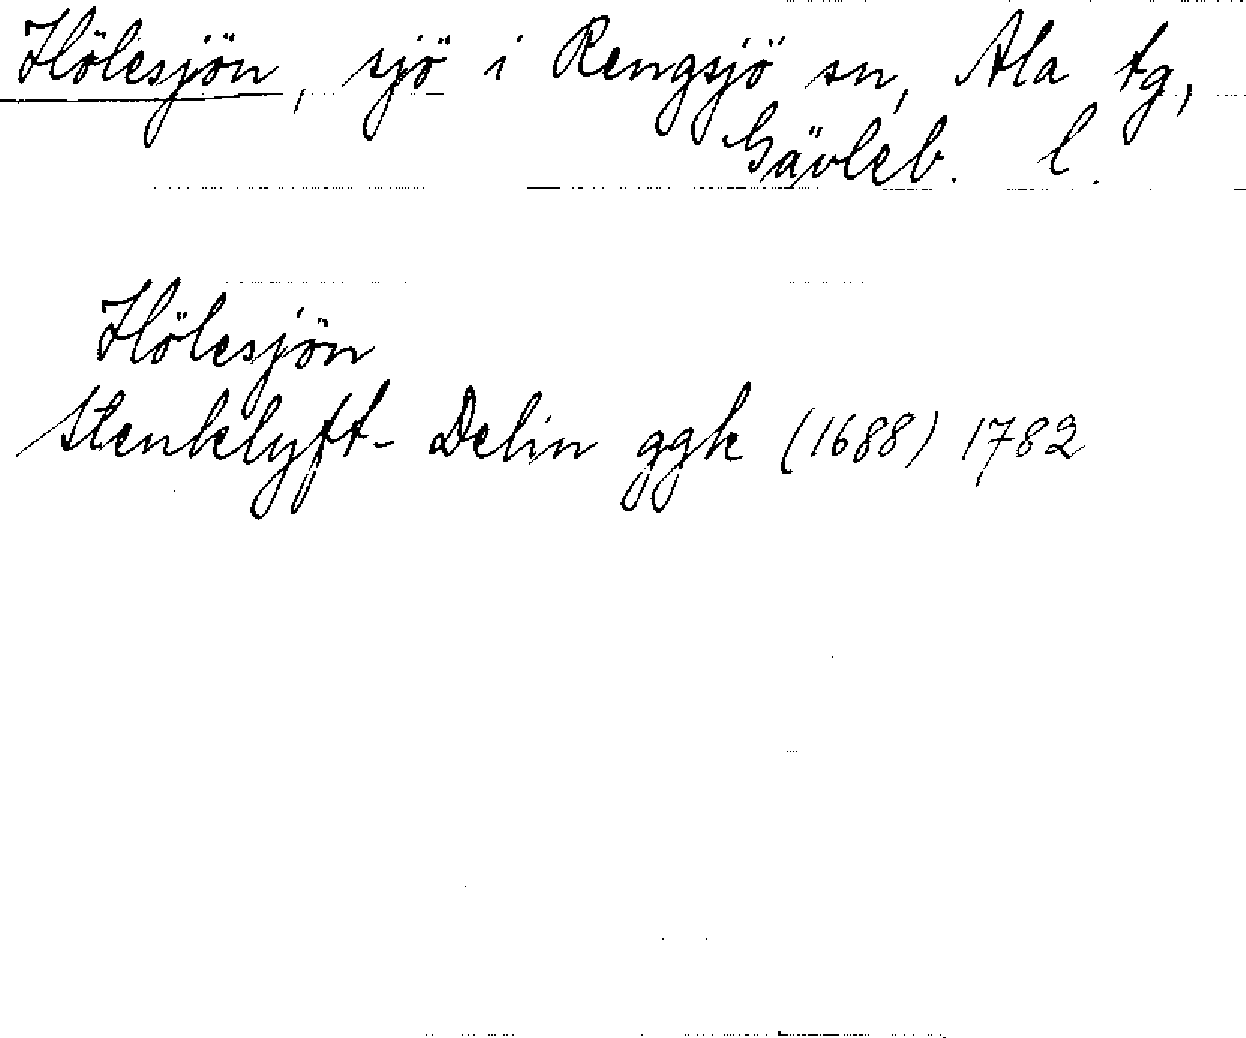 Hölesjön, sjö i Rengsjö sn, Ala tg,
Gävleb. l.
Hölesjön
Stenklyft- Delin ggk (1688) 1782